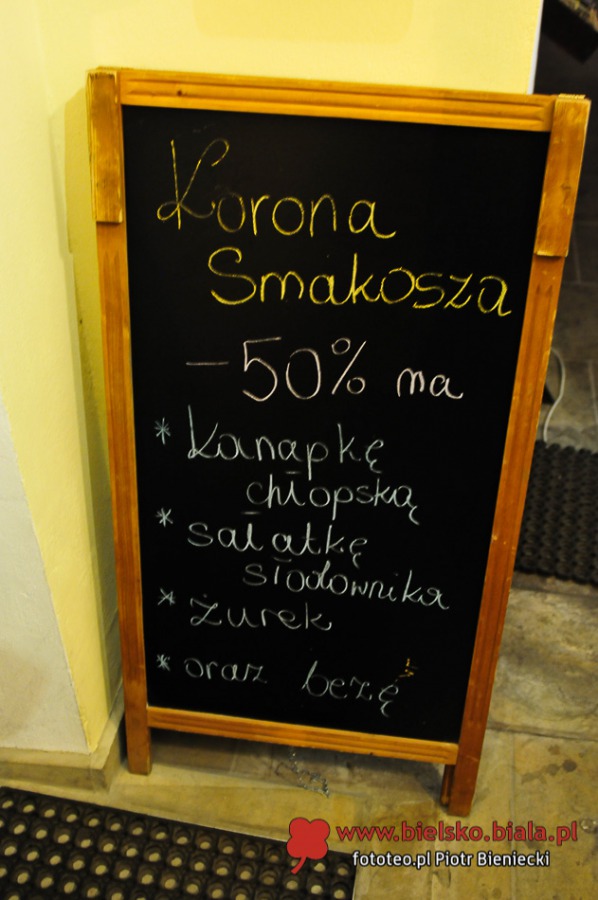 Korona
Smakosza
-50% na
* kanapkę
chłopską
* sałatkę
słodownika
* żurek
* oraz bezę
www.bielsko.biala.pl
fototeo.pl Piotr Bieniecki